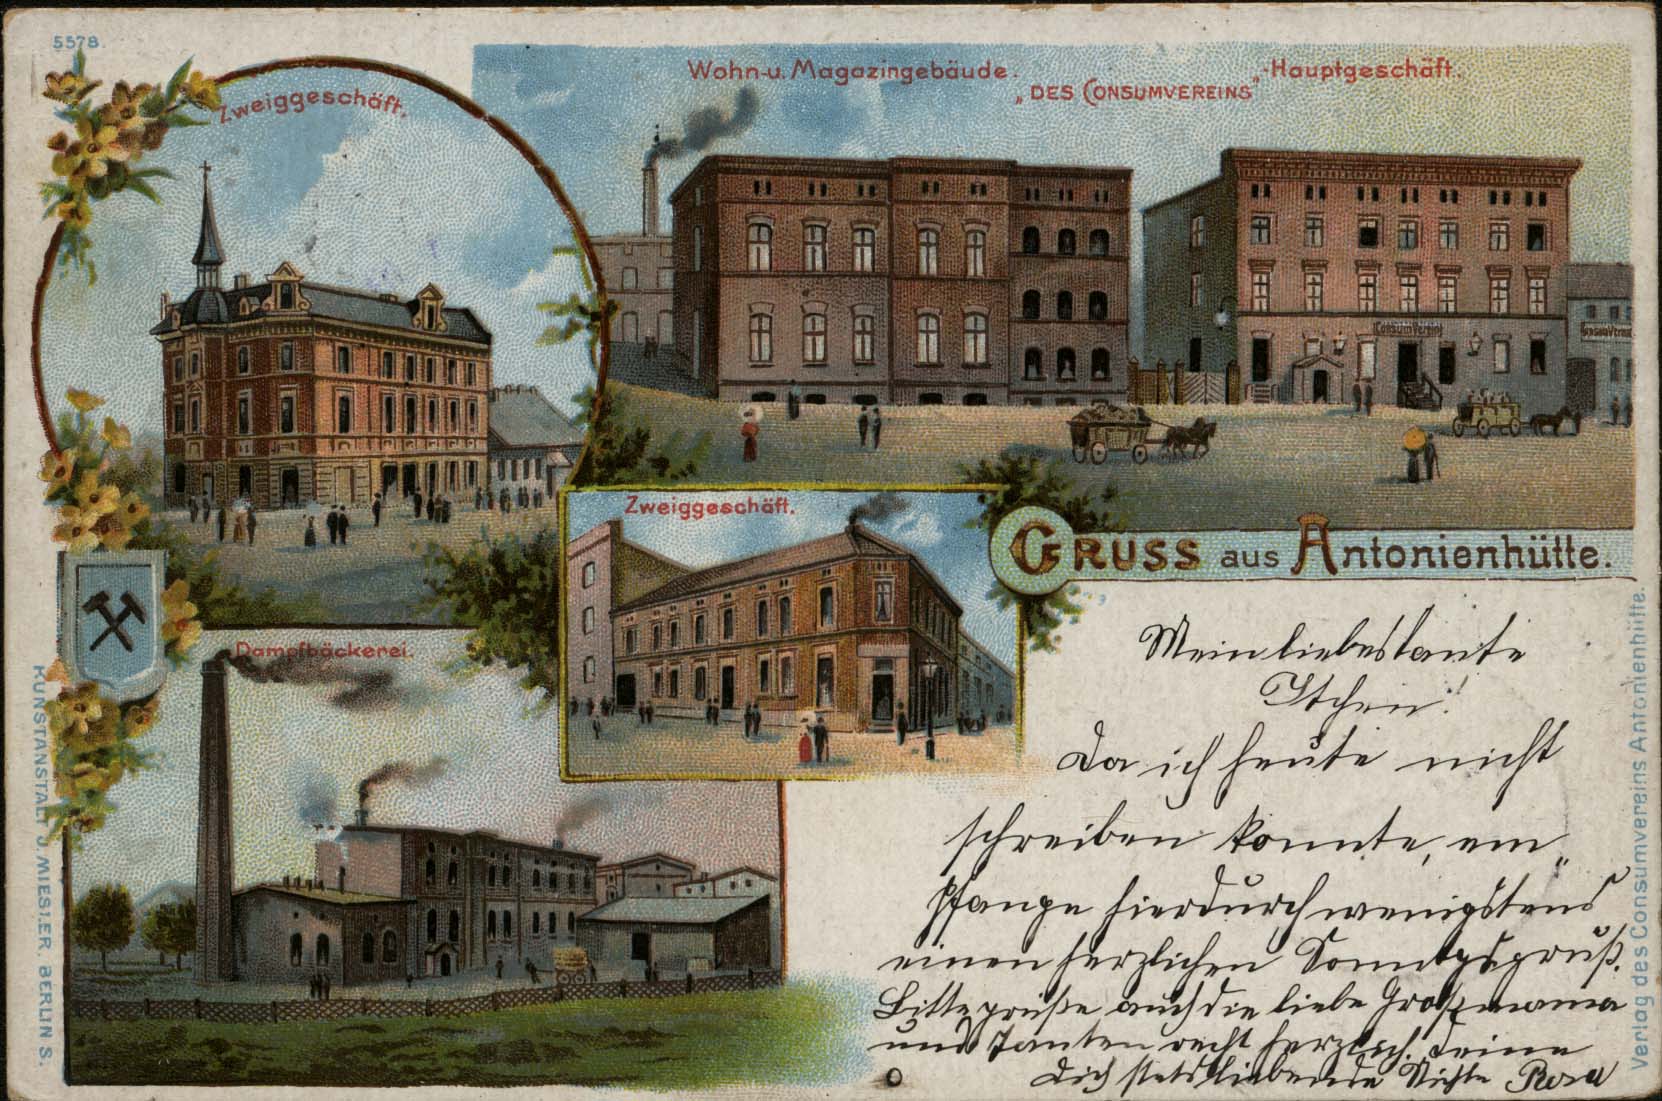 5578.
Zweiggeschäft.
Wohn-u. Magazingebäude. -Hauptgeschäft.
„DES CONSUMVEREINS"
Consum Verein
Zweiggeschäft.
GRUSS aus Antonienhütte.
Dampfbäckerei.
Mein liebes Tante
Da ich heute nicht
schreiben konnte, em„
pfange hierdurch wenigstens
einen herzlichen Sonntagsgruß.
Bitte grüße auch die liebe Großmama
und Tanten recht herzlich. Deine
Dich stets liebende Nichte Rosa
KUNSTANSTALT J. MIESLER. BERLIN S.
Verlag des Consumvereins Antonienhütte.